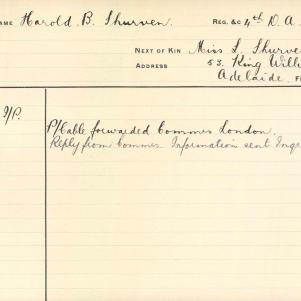 NAME Harold B. Shurven. REG. &C 4th D. A.
NEXT OF KIN Miss L. Shurve
ADDRESS 53. King Will
Adelaide. F
P/Cable forwarded Commrs London.
Reply from Commrs. Information sent